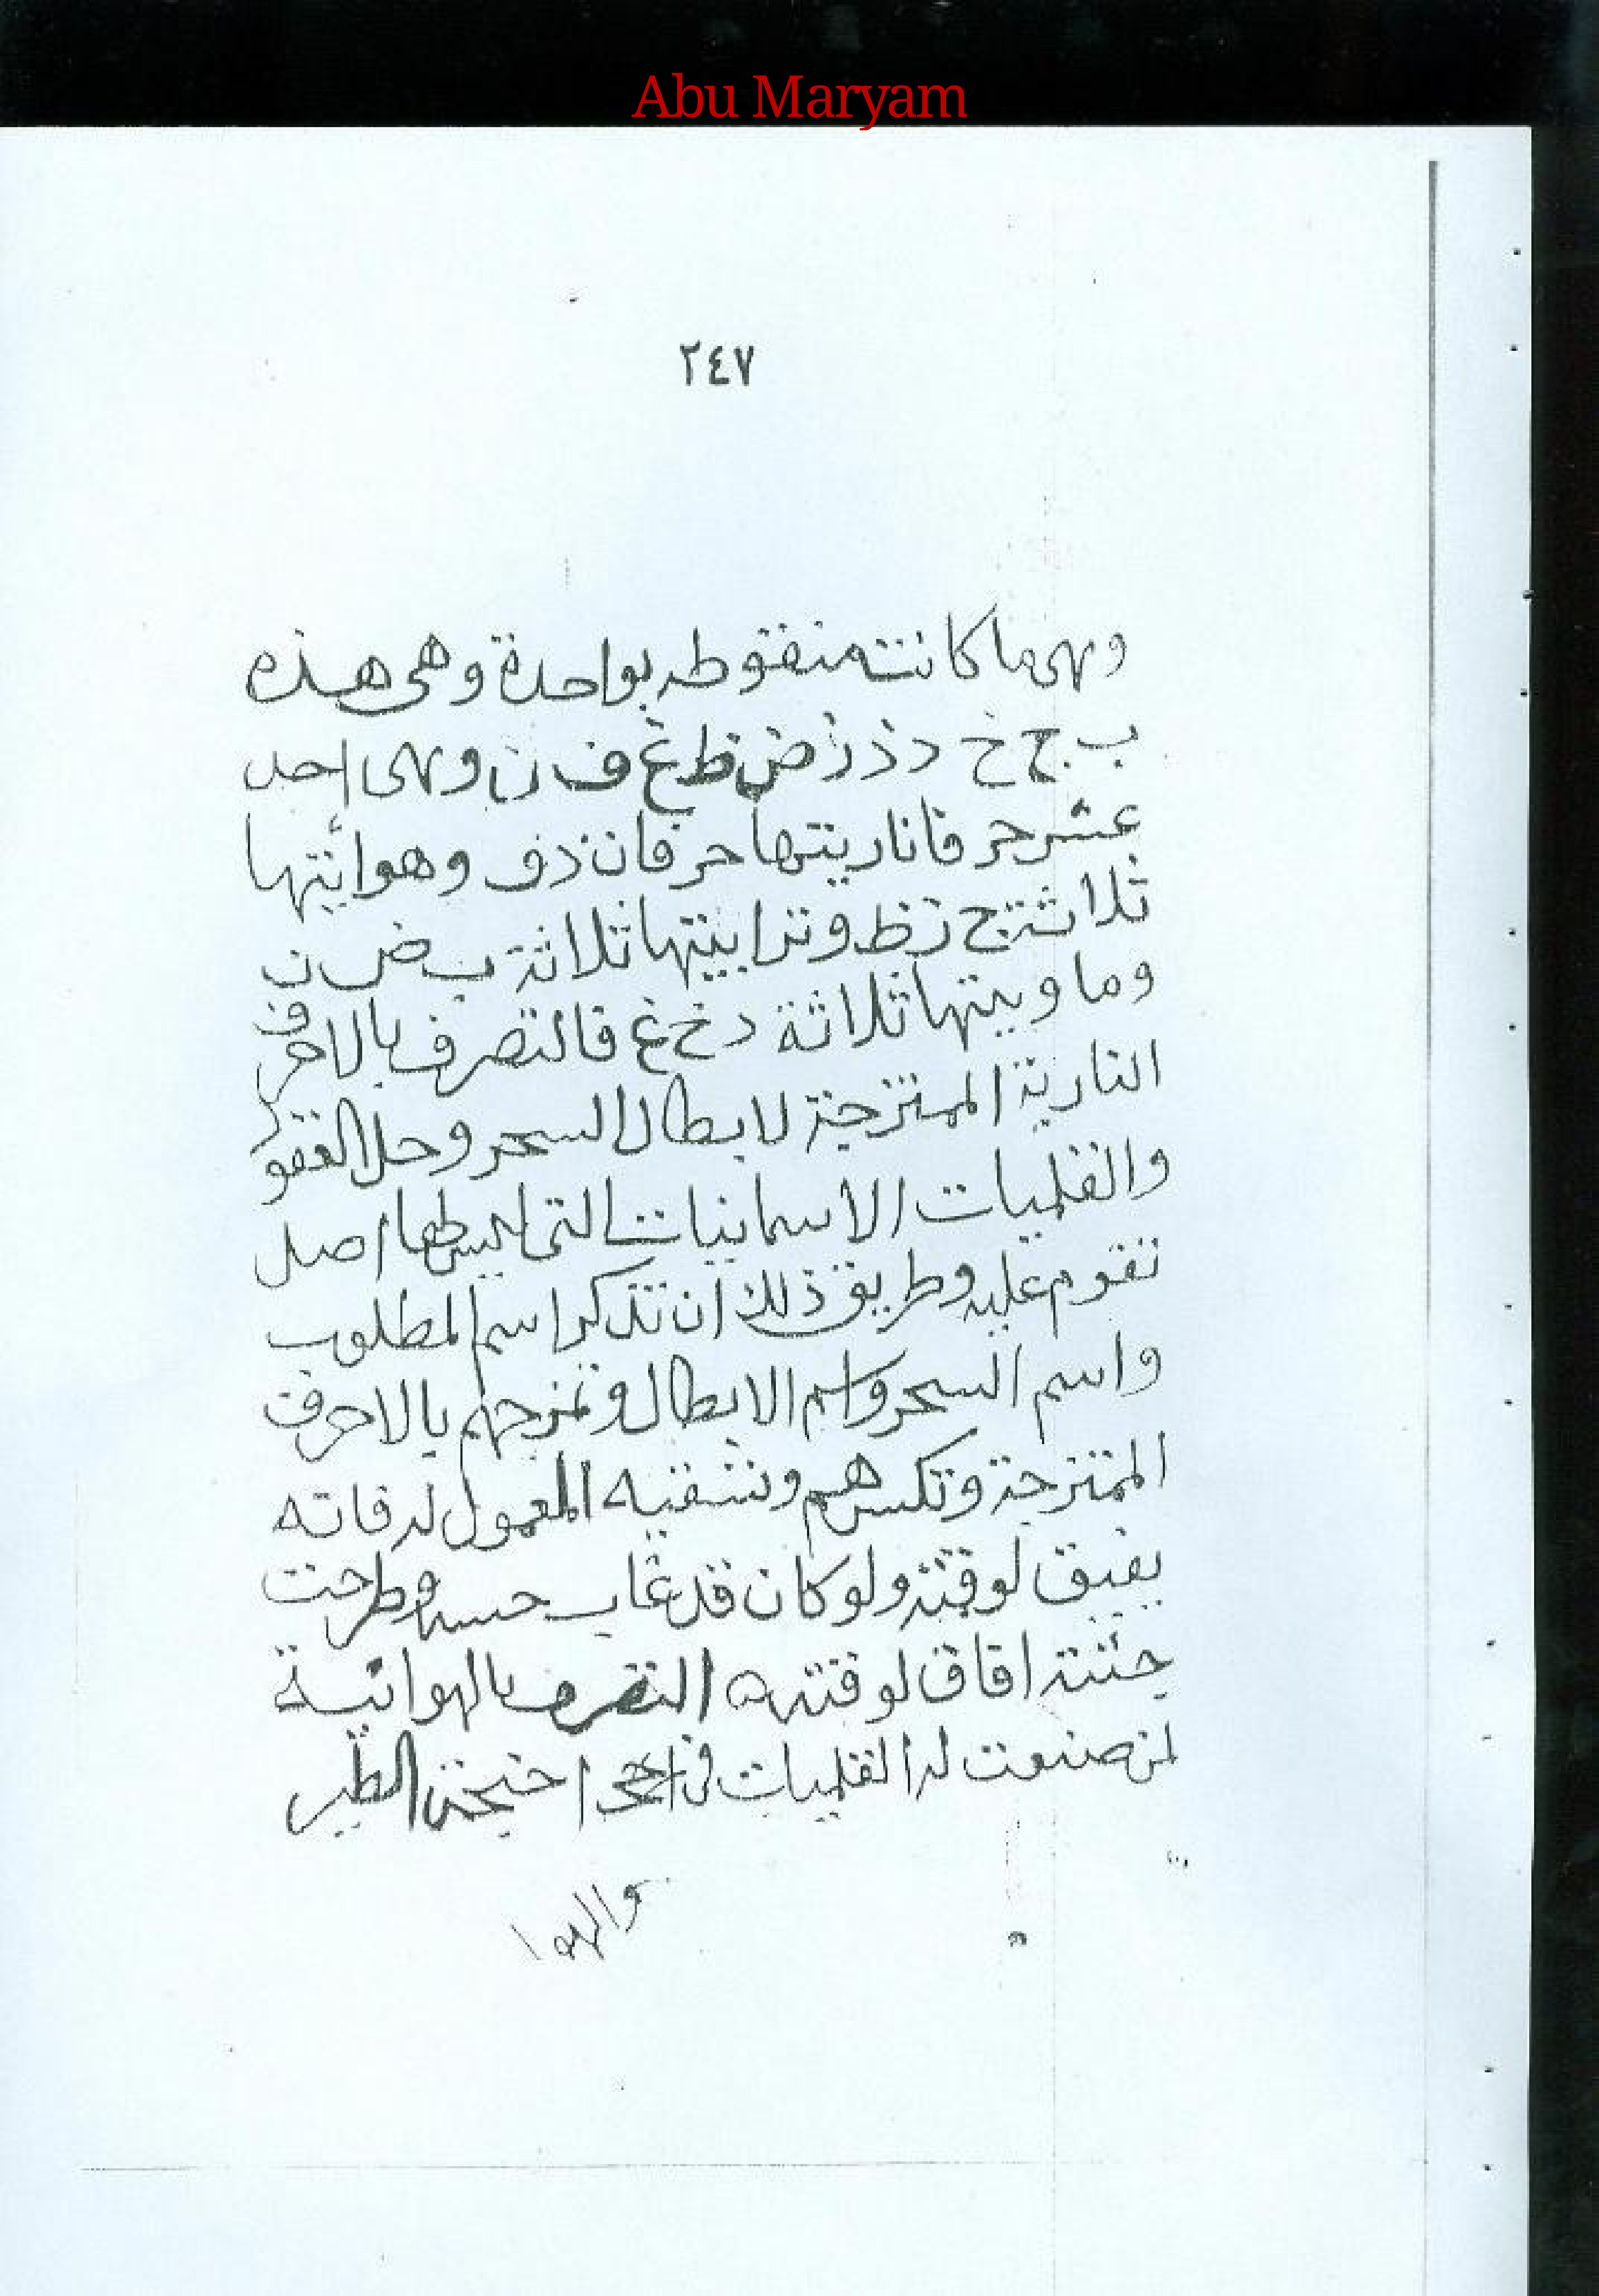 Abu Maryam
٢٤٧
وهى ما كانت منقوطه بواحدة وهى هذه
ب ج خ د ذ ز ض ظ غ ف ن وهى احد
عشر حرفا ناريتها حرفان ذ ف وهوائيتها
ثلاثة ج ز ظ وترابيتها ثلاثة ب ض ن
وماويتها ثلاثة د خ غ فالتصرف بالاحرف
النارية الممتزجة لابطال السحر وحل العقود
والقلميات الاسمانيات التى ليس لها اصل
تقوم عليه وطريق ذلك ان تذكر اسم المطلوب
واسم السحر واسم الابطال وتمزجهم بالاحرف
الممتزجة وتكسرهم وتسقيه المعمول له فانه
يفيق لوقته ولو كان قد غاب حسه وطرحت
جثته افاق لوقته التصرف بالهوائية
لمن صنعت له القلميات فى اجنحة الطير
والهوا